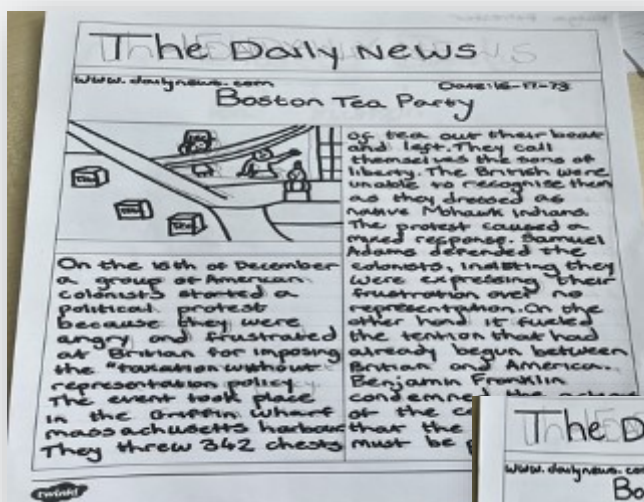 The Daily News
www.dailynews.com
Date:16-17-73
Boston Tea Party
TEA
TEA
TEA
On the 16th of December
a group of American
colonists started a
political protest
because they were
angry and frustrated
at Britian for imposing
the "taxation without
representation policy
The event took place
in the Griffin wharf
massachusetts harbour
They threw 342 chests
of tea out their boat
and left. They call
themselves the sons of
liberty. The British were
unable to recognise them
as they dressed as
native Mohawk Indians.
The protest caused a
mixed response. Samuel
Adams defended the
colonists, insisting they
were expressing their
frustration over no
representation. On the
other hand it fueled
the tention that had
already begun between
Britian and America.
Benjamin Franklin
condemned the
of the
that the
must be
twinkl
The D
www.dailynews.co
Bo